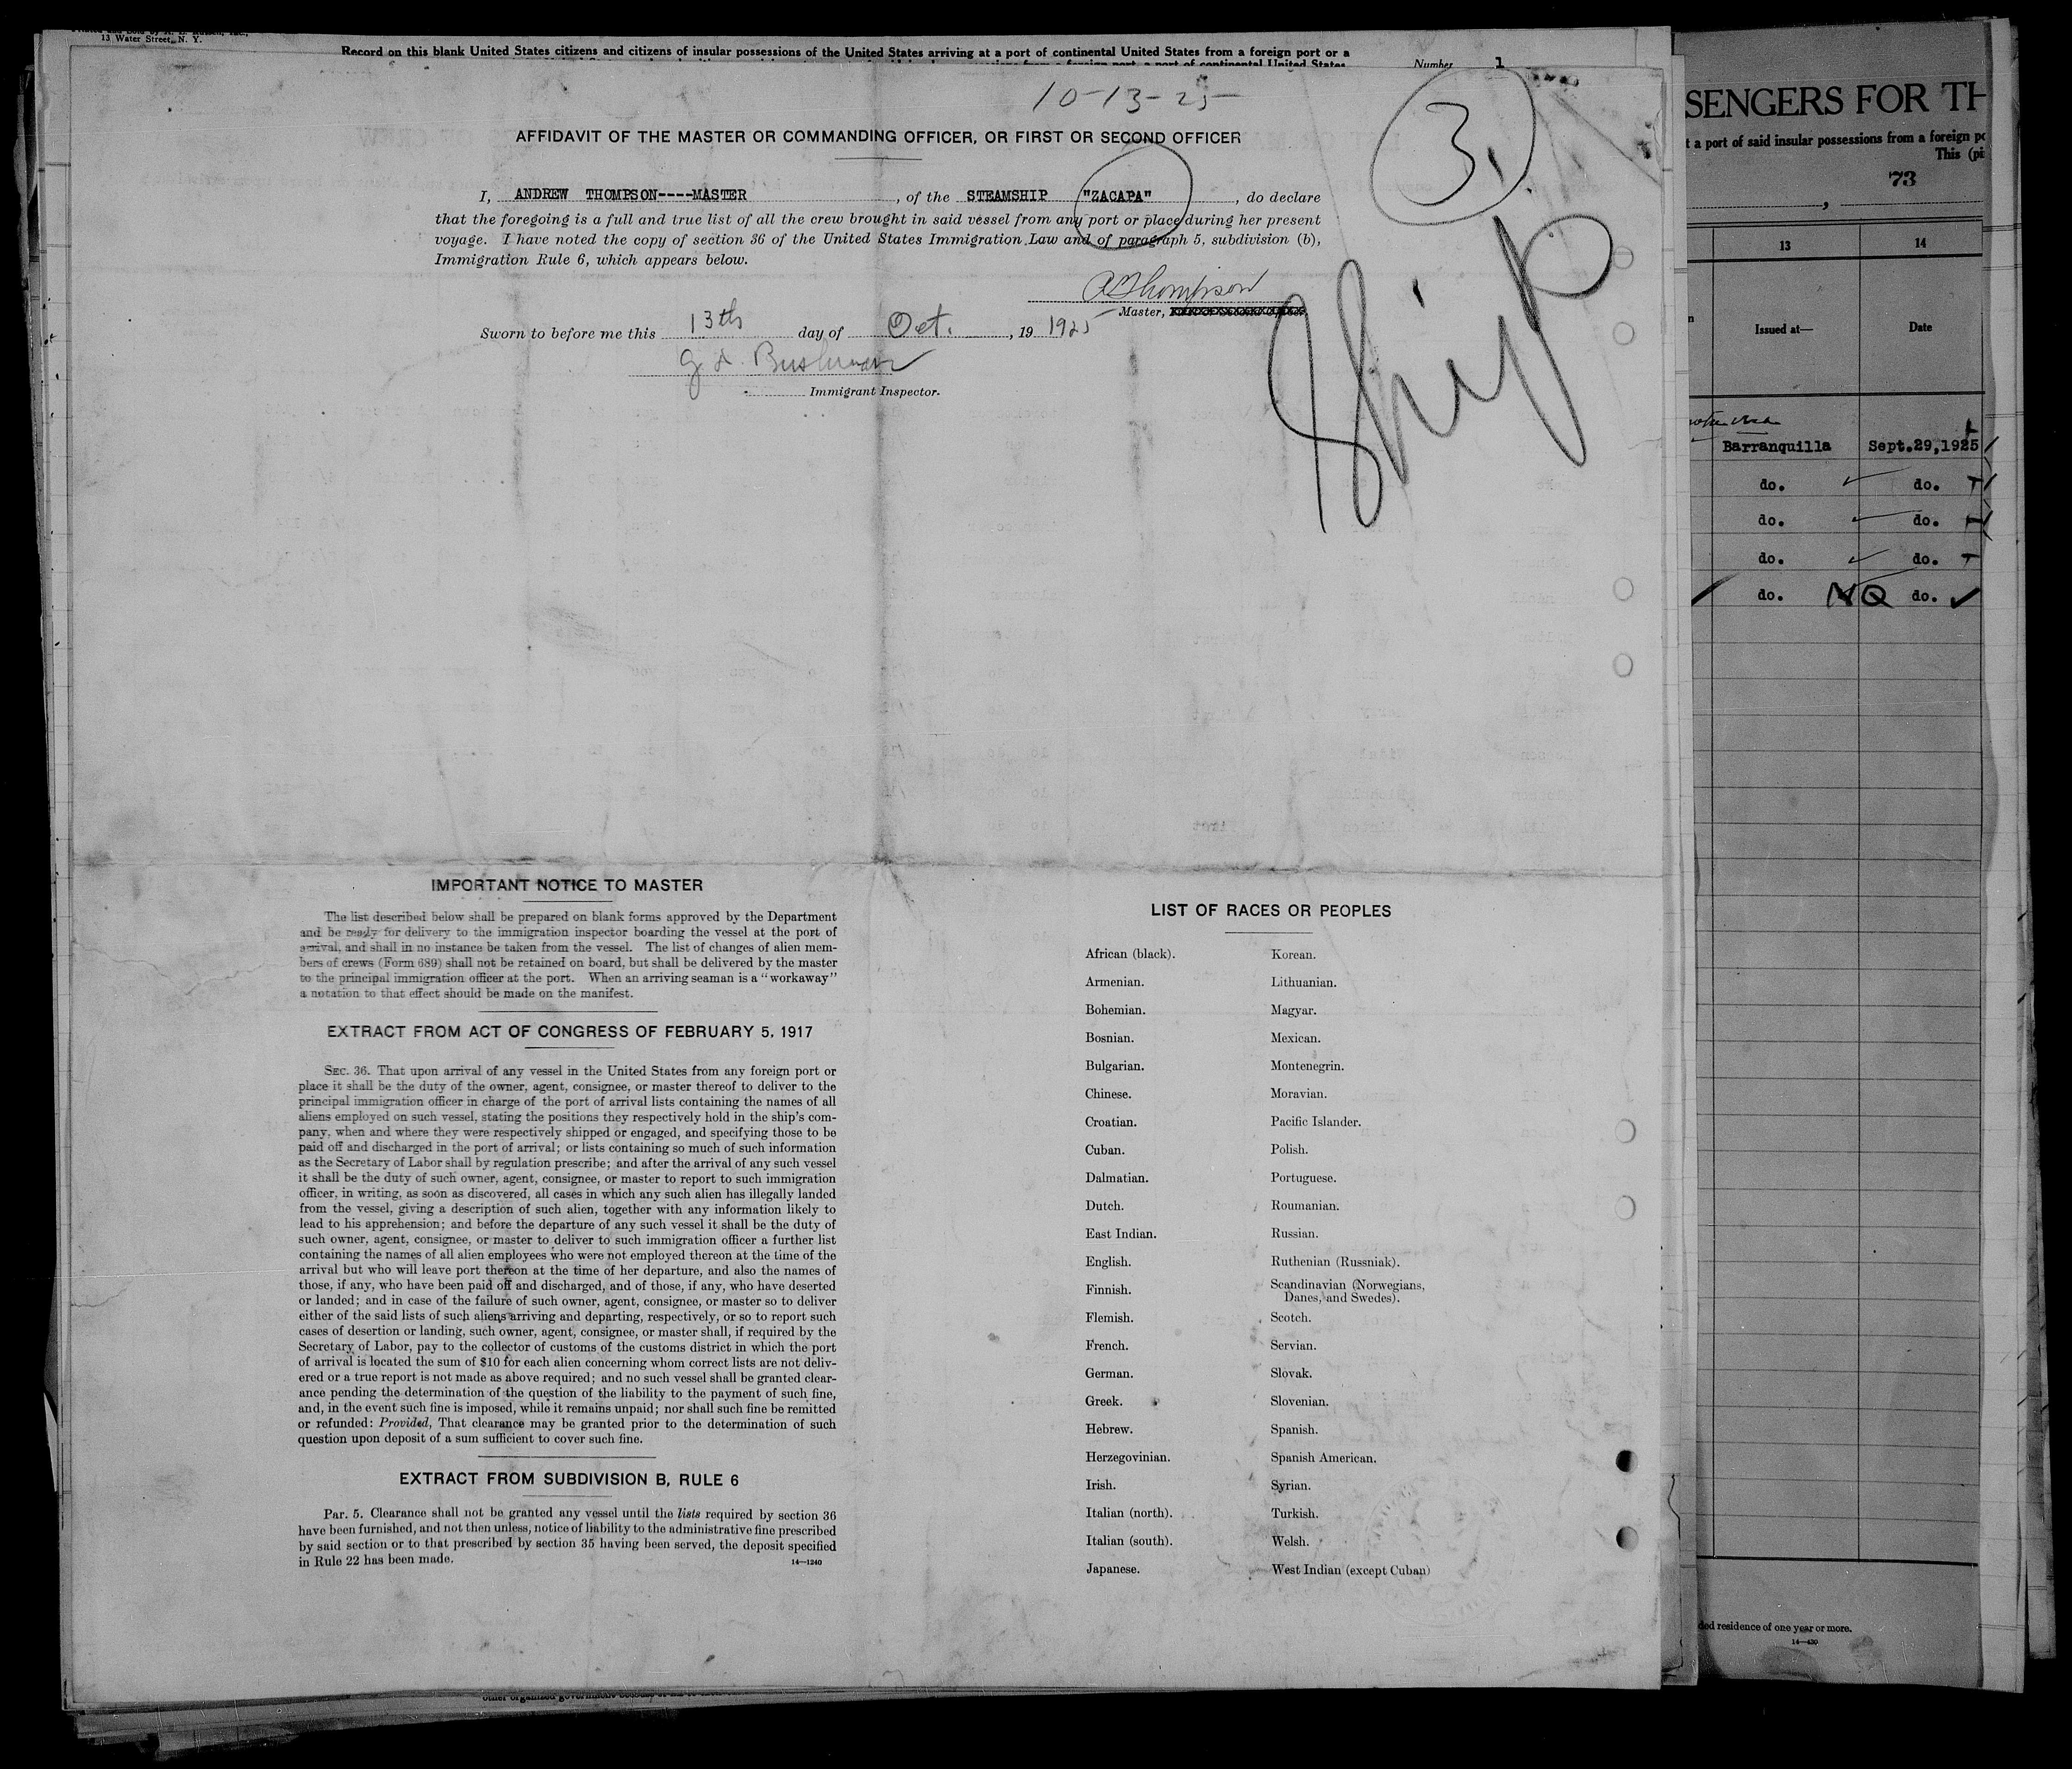 13 Water Street, N. Y.
Record on this blank United States citizens and citizens of insular possessions of the United States arriving at a port of continental United States from a foreign port or a
Number 1
10-13-25
3,
AFFIDAVIT OF THE MASTER OR COMMANDING OFFICER, OR FIRST OR SECOND OFFICER
I, ANDREW THOMPSON----MASTER, of the STEAMSHIP "ZACAPA", do declare
that the foregoing is a full and true list of all the crew brought in said vessel from any port or place during her present
voyage. I have noted the copy of section 36 of the United States Immigration Law and of paragraph 5, subdivision (b),
Immigration Rule 6, which appears below.
A Thompson
Master,
Sworn to before me this 13th day of Oct., 19 1925
Immigrant Inspector.
Ship
IMPORTANT NOTICE TO MASTER
The list described below shall be prepared on blank forms approved by the Department
and be ready for delivery to the immigration inspector boarding the vessel at the port of
arrival, and shall in no instance be taken from the vessel. The list of changes of alien mem-
bers of crews (Form 689) shall not be retained on board, but shall be delivered by the master
to the principal immigration officer at the port. When an arriving seaman is a "workaway"
a notation to that effect should be made on the manifest.
EXTRACT FROM ACT OF CONGRESS OF FEBRUARY 5, 1917
SEC. 36. That upon arrival of any vessel in the United States from any foreign port or
place it shall be the duty of the owner, agent, consignee, or master thereof to deliver to the
principal immigration officer in charge of the port of arrival lists containing the names of all
aliens employed on such vessel, stating the positions they respectively hold in the ship's com-
pany, when and where they were respectively shipped or engaged, and specifying those to be
paid off and discharged in the port of arrival; or lists containing so much of such information
as the Secretary of Labor shall by regulation prescribe; and after the arrival of any such vessel
it shall be the duty of such owner, agent, consignee, or master to report to such immigration
officer, in writing, as soon as discovered, all cases in which any such alien has illegally landed
from the vessel, giving a description of such alien, together with any information likely to
lead to his apprehension; and before the departure of any such vessel it shall be the duty of
such owner, agent, consignee, or master to deliver to such immigration officer a further list
containing the names of all alien employees who were not employed thereon at the time of the
arrival but who will leave port thereon at the time of her departure, and also the names of
those, if any, who have been paid off and discharged, and of those, if any, who have deserted
or landed; and in case of the failure of such owner, agent, consignee, or master so to deliver
either of the said lists of such aliens arriving and departing, respectively, or so to report such
cases of desertion or landing, such owner, agent, consignee, or master shall, if required by the
Secretary of Labor, pay to the collector of customs of the customs district in which the port
of arrival is located the sum of $10 for each alien concerning whom correct lists are not deliv-
ered or a true report is not made as above required; and no such vessel shall be granted clear-
ance pending the determination of the question of the liability to the payment of such fine,
and, in the event such fine is imposed, while it remains unpaid; nor shall such fine be remitted
or refunded: Provided, That clearance may be granted prior to the determination of such
question upon deposit of a sum sufficient to cover such fine.
EXTRACT FROM SUBDIVISION B, RULE 6
Par. 5. Clearance shall not be granted any vessel until the lists required by section 36
have been furnished, and not then unless, notice of liability to the administrative fine prescribed
by said section or to that prescribed by section 35 having been served, the deposit specified
in Rule 22 has been made.
14—1240
LIST OF RACES OR PEOPLES
African (black).
Armenian.
Bohemian.
Bosnian.
Bulgarian.
Chinese.
Croatian.
Cuban.
Dalmatian.
Dutch.
East Indian.
English.
Finnish.
Flemish.
French.
German.
Greek.
Hebrew.
Herzegovinian.
Irish.
Italian (north).
Italian (south).
Japanese.
Korean.
Lithuanian.
Magyar.
Mexican.
Montenegrin.
Moravian.
Pacific Islander.
Polish.
Portuguese.
Roumanian.
Russian.
Ruthenian (Russniak).
Scandinavian (Norwegians,
Danes, and Swedes).
Scotch.
Servian.
Slovak.
Slovenian.
Spanish.
Spanish American.
Syrian.
Turkish.
Welsh.
West Indian (except Cuban)
SENGERS FOR TH
t a port of said insular possessions from a foreign
This
73
13 14
Issued at— Date
Barranquilla Sept.29,1925
do. do.
do. do.
do. do.
do. NQ do.
ded residence of one year or more.
14—430